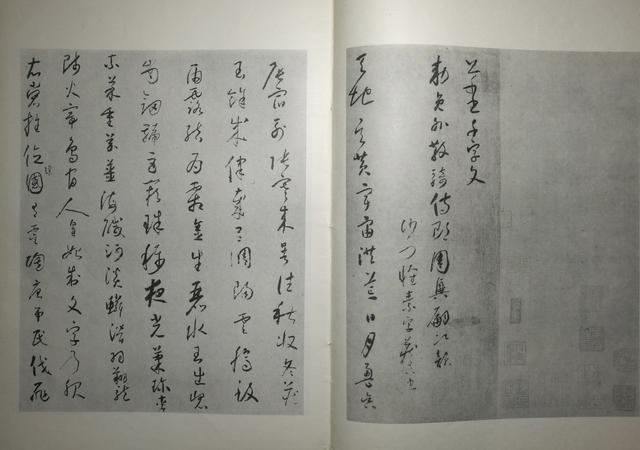 千字文
敕員外散騎侍郎周興嗣次韻
沙門懷素字藏真書
天地玄黃宇宙洪荒日月盈昃
辰宿列張寒來暑往秋收冬藏
閏餘成律歲呂調陽雲騰致
雨露結為霜金生麗水玉出崑
崗劍號巨闕珠稱夜光菓珍李
柰菜重芥薑海鹹河淡鱗潛羽翔龍
師火帝鳥官人皇始制文字乃服
衣裳推位讓國有虞陶唐弔民伐罪